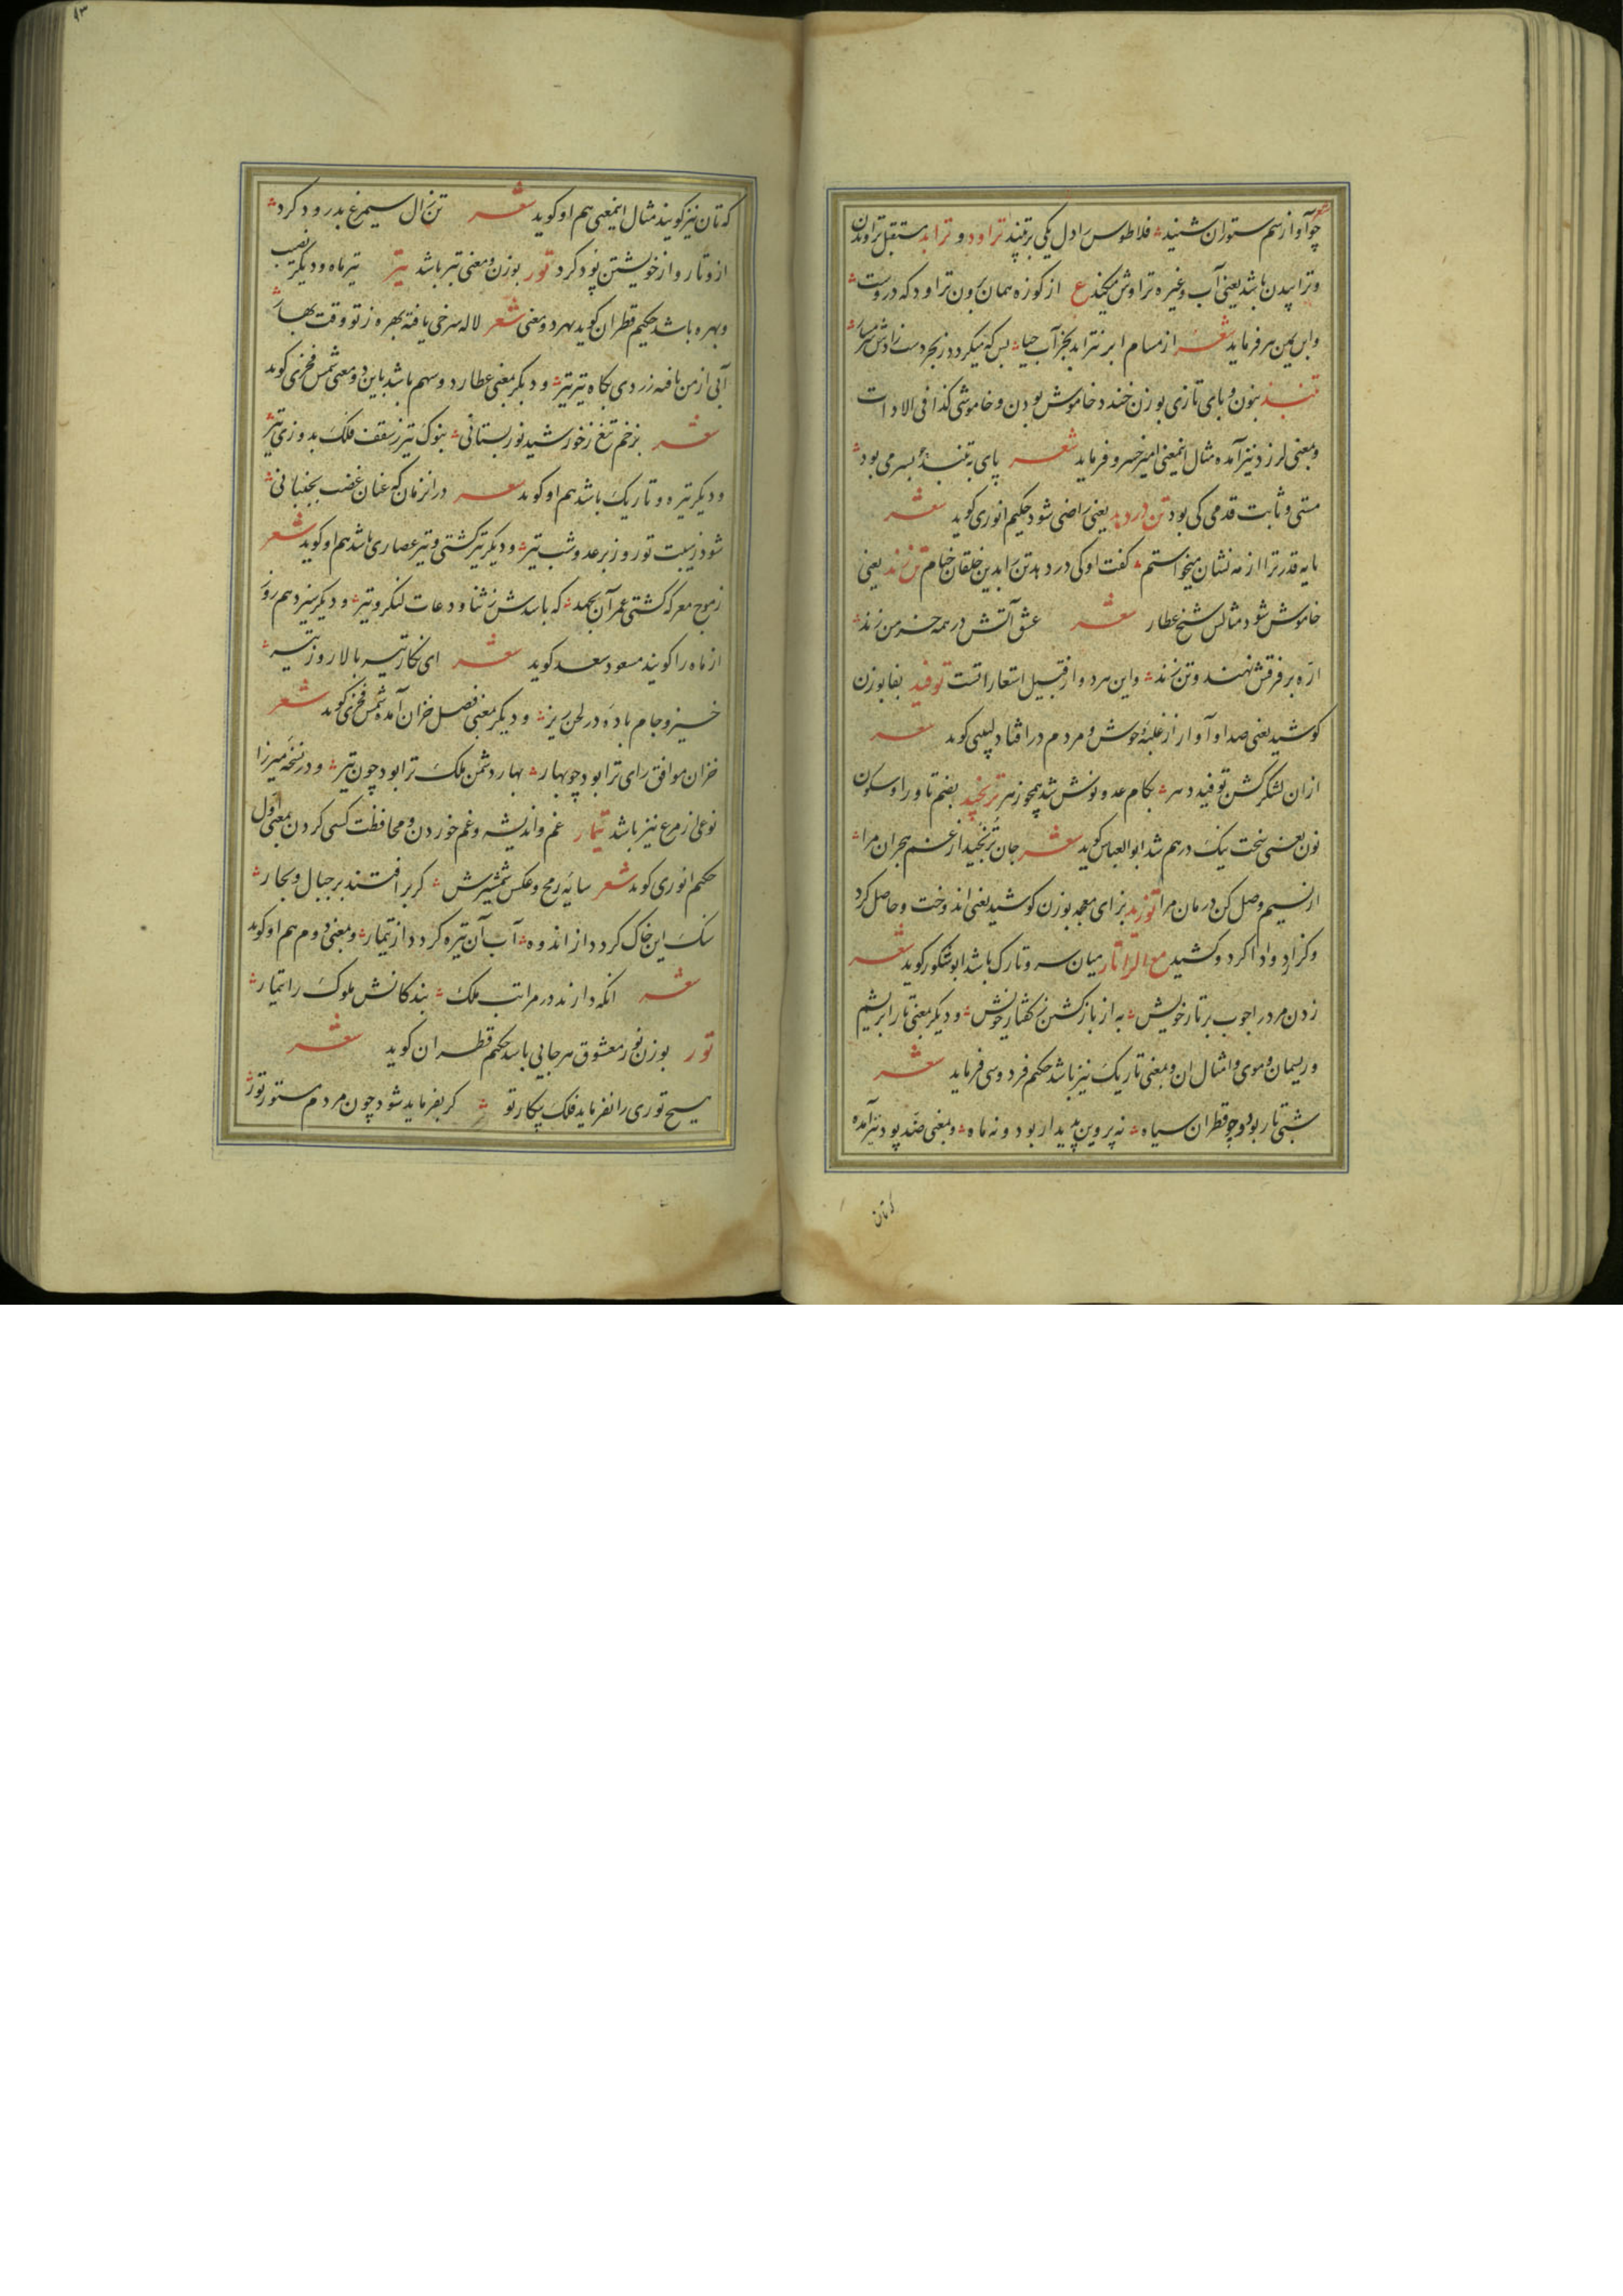 شعر
چو آواز سم ستوران شنید فلاطوس را دل یکی برتپید تراود و ترابد مستقبل تراودن
و ترابیدن باشد یعنی آب و غیره تراوش میکند ع از کوزه همان برون تراود که دروست
و ابن یمین هم فرماید شعر از مسام ابر نترابد بجز آب حیا بس که میگردد ز بحر دست رادش شرمسار
تنبد بنون و بای تازی بوزن خندد خاموش بودن و خاموشی کذا فی الادات
و بمعنی لرزد نیز آمده مثال اینمعنی امیر خسرو فرماید شعر پای به تنبد بسر می بود
مستی و ثابت قدمی کی بود تن در دهد یعنی راضی شود حکیم انوری گوید شعر
پایه قدر ترا از مه نشان میخواستم گفت او کی در دهد تن را بدین خلقان خیام تن زند یعنی
خاموش شود مثالش شیخ عطار شعر عشق آتش در همه خرمن زند
اره بر فرقش نهند و تن زند و این هر دو از قبیل استعاراتست توفید بفا بوزن
کوشید یعنی صدا و آواز از غلبه وحوش و مردم در افتاد لبیبی گوید شعر
ازان لشکر گشن توفید دهر بکام عدو نوش شد همچو زهر ترنجید بضم تا و را و سکون
نون یعنی سخت نیک درهم شد ابو العباس گوید شعر جان ترنجید از غم هجران مرا
از نسیم وصل کن درمان مرا توزید بزای معجمه بوزن کوشید یعنی اندوخت و حاصل کرد
و گزارد و ادا کرد و کشید مع الرا تار میان سر و تارک باشد ابو شکور گوید شعر
زدن مرد را چوب بر تار خویش به از باز گشتن ز گفتار خویش و دیگر بمعنی تار ابریشم
و ریسمان و موی و امثال ان و بمعنی تاریک نیز باشد حکیم فردوسی فرماید شعر
شبی تار بود و چو قطران سیاه نه پروین پدیدار بود و نه ماه و بمعنی ضد پود نیز آمده
که تان نیز گویند مثال اینمعنی هم او گوید شعر تن زال سیمرغ بدرود کرد
ازو تار و از خویشتن پود کرد تور بوزن و معنی تبر باشد تیر تیر ماه و دیگر نصیب
و بهره باشد حکیم قطران گوید بهر دو معنی شعر لاله سرخی یافته بهره ز تو وقت بهار
آبی از من یافته زردی بگاه تیر تیر و دیگر بمعنی عطارد و سهم باشد باین دو معنی شمس فخری گوید
شعر بزخم تیغ ز خورشید نور بستانی بنوک تیر ز سقف فلک بدوزی تیر
و دیگر تیره و تاریک باشد هم او گوید شعر در انزمان که عنان غضب بجنبانی
شود ز هیبت تو روز بر عدو شب تیر و دیگر تیر کشتی و تیر عصاری باشد هم او گوید شعر
ز موج معرکه کشتی عمر آن بجهد که باشدش ز ثنا و دعات لنگر و تیر و دیگر سیزدهم روز
از ماه را گویند مسعود سعد گوید شعر ای نگار تیر بالا روز تیر
خیز و جام باده در لحن ریز و دیگر بمعنی فصل خزان آمده شمس فخری گوید شعر
خزان موافق رای ترا بود چو بهار بهار دشمن ملک ترا بود چون تیر و در نسخه میرزا
نوعی از مرغ نیز باشد تیمار غم و اندیشه و غم خوردن و محافظت کسی کردن بمعنی اول
حکیم انوری گوید شعر سایه رمح و عکس شمشیرش گر بر افتند بر جبال و بحار
سنگ این خاک گردد از اندوه آب آن تیره گردد از تیمار و بمعنی دوم هم او گوید
شعر انکه دارند در مراتب ملک بندگانش ملوک را تیمار
تور بوزن نور معشوق هر جایی باشد حکیم قطران گوید شعر
هیچ توری را نفرماید فلک پیکار تو گر بفرماید شود چون مردم مستور تور
که تان